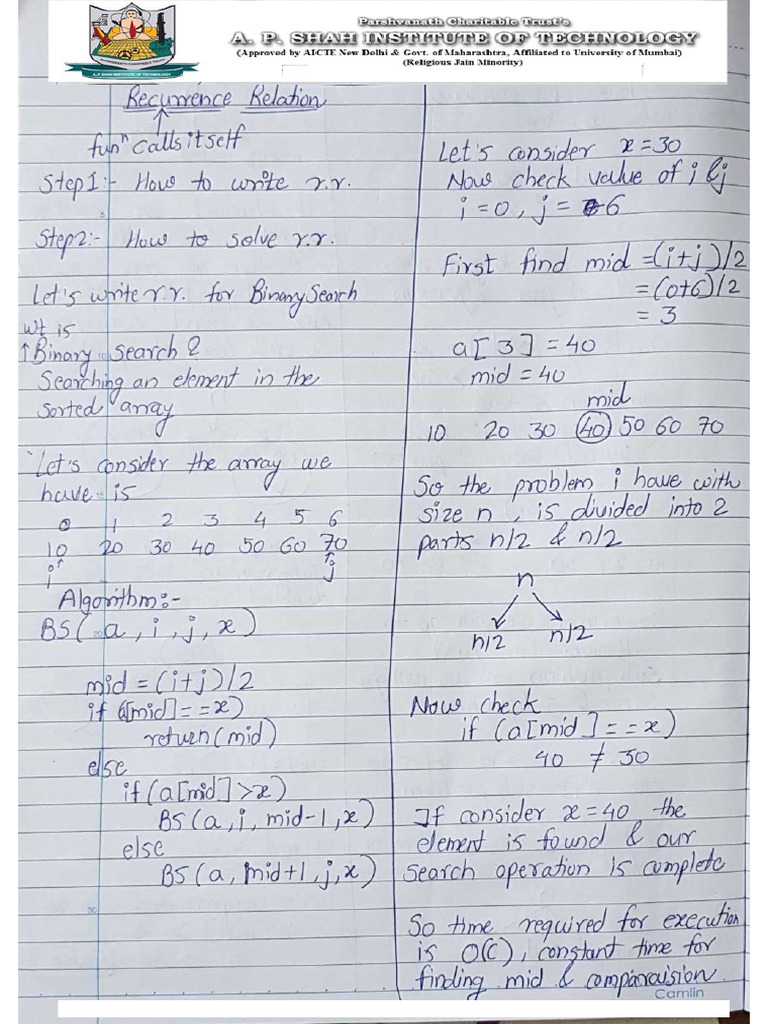 Parshvanath Charitable Trust's
A. P. SHAH INSTITUTE OF TECHNOLOGY
(Approved by AICTE New Delhi & Govt. of Maharashtra, Affiliated to University of Mumbai)
(Religious Jain Minority)
A.P. SHAH INSTITUTE OF TECHNOLOGY
Recurrence Relation
funⁿ calls itself
Step1:- How to write r.r.
Step2:- How to solve r.r.
Let's write r.r. for Binary Search
Wt is
↑Binary search?
Searching an element in the
sorted array
Let's consider the array we
have is
0 1 2 3 4 5 6
10 20 30 40 50 60 70
↑ ↑
i j
Algorithm:-
BS( a, i, j, x)
mid = (i+j)/2
if (a[mid]==x)
return(mid)
else
if(a[mid]>x)
BS(a, i, mid-1, x)
else
BS(a, mid+1, j, x)
30
Let's consider x=30
Now check value of i & j
i=0, j=6
First find mid =(i+j)/2
=(0+6)/2
= 3
a[3]=40
mid=40
mid
10 20 30 40 50 60 70
So the problem i have with
size n, is divided into 2
parts n/2 & n/2
n
n/2 n/2
Now check
if (a[mid]==x)
40 ≠ 30
If consider x=40 the
element is found & our
search operation is complete
So time required for execution
is O(C), constant time for
finding mid & comparaision.
Camlin